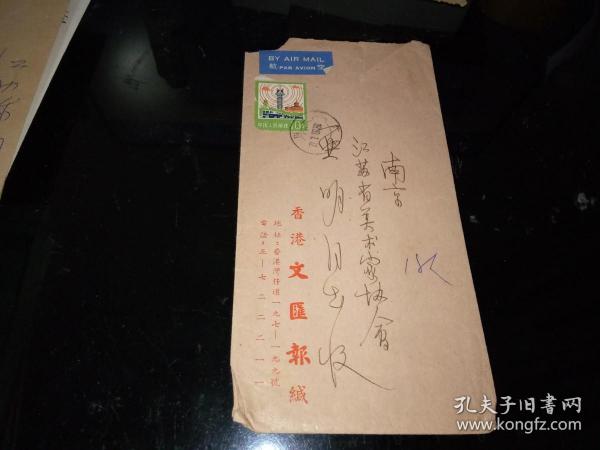 BY AIR MAIL
航 PAR AVION 空
中国人民邮政
南京
江苏省美术家协会
明
收
香港文匯報緘
地址：香港灣仔道一九七—一九九號
電話：五—七二二二一一
孔夫子旧书网
www.kongfz.com